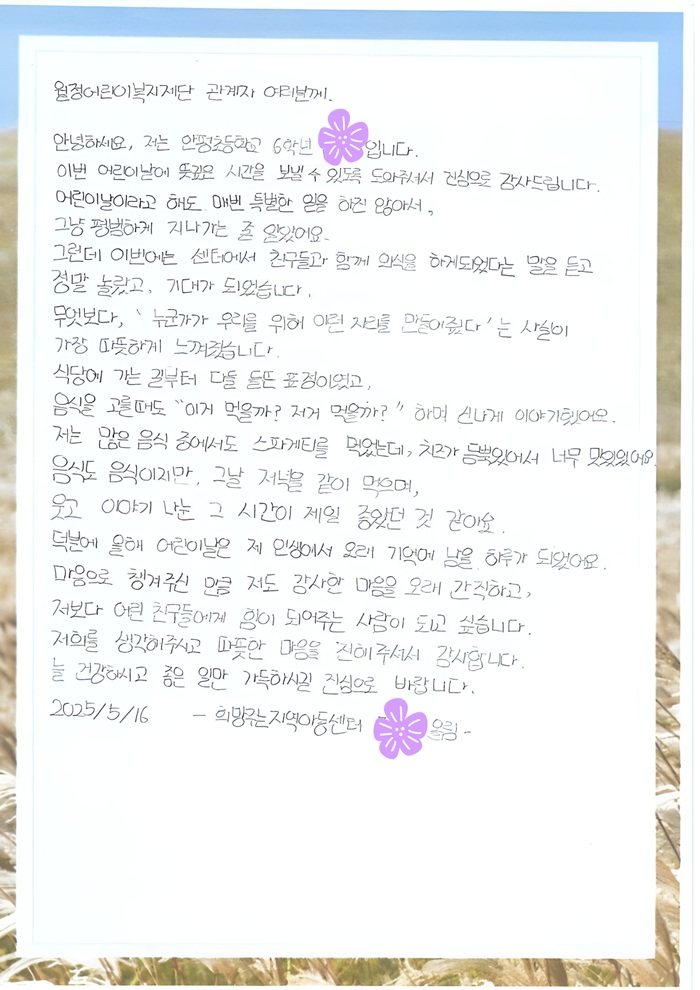 월정어린이복지재단 관계자 여러분께.
안녕하세요, 저는 안평초등학교 6학년 입니다.
이번 어린이날에 뜻깊은 시간을 보낼 수 있도록 도와주셔서 진심으로 감사드립니다.
어린이날이라고 해도 매번 특별한 일을 하진 않아서,
그냥 평범하게 지나가는 줄 알았어요.
그런데 이번에는 센터에서 친구들과 함께 외식을 하게되었다는 말을 듣고
정말 놀랐고, 기대가 되었습니다.
무엇보다, '누군가가 우리를 위해 이런 자리를 만들어줬다'는 사실이
가장 따뜻하게 느껴졌습니다.
식당에 가는 길부터 다들 들뜬 표정이었고,
음식을 고를때도 "이거 먹을까? 저거 먹을까?" 하며 신나게 이야기했어요.
저는 많은 음식 중에서도 스파게티를 먹었는데, 치즈가 듬뿍있어서 너무 맛있있어요.
음식도 음식이지만, 그날 저녁을 같이 먹으며,
웃고 이야기 나눈 그 시간이 제일 좋았던 것 같아요.
덕분에 올해 어린이날은 제 인생에서 오래 기억에 남을 하루가 되었어요.
마음으로 챙겨주신 만큼 저도 감사한 마음을 오래 간직하고,
저보다 어린 친구들에게 힘이 되어주는 사람이 되고 싶습니다.
저희를 생각해주시고 따뜻한 마음을 전해주셔서 감사합니다.
늘 건강하시고 좋은 일만 가득하시길 진심으로 바랍니다.
2025/5/16 - 희망주는지역아동센터 올림-